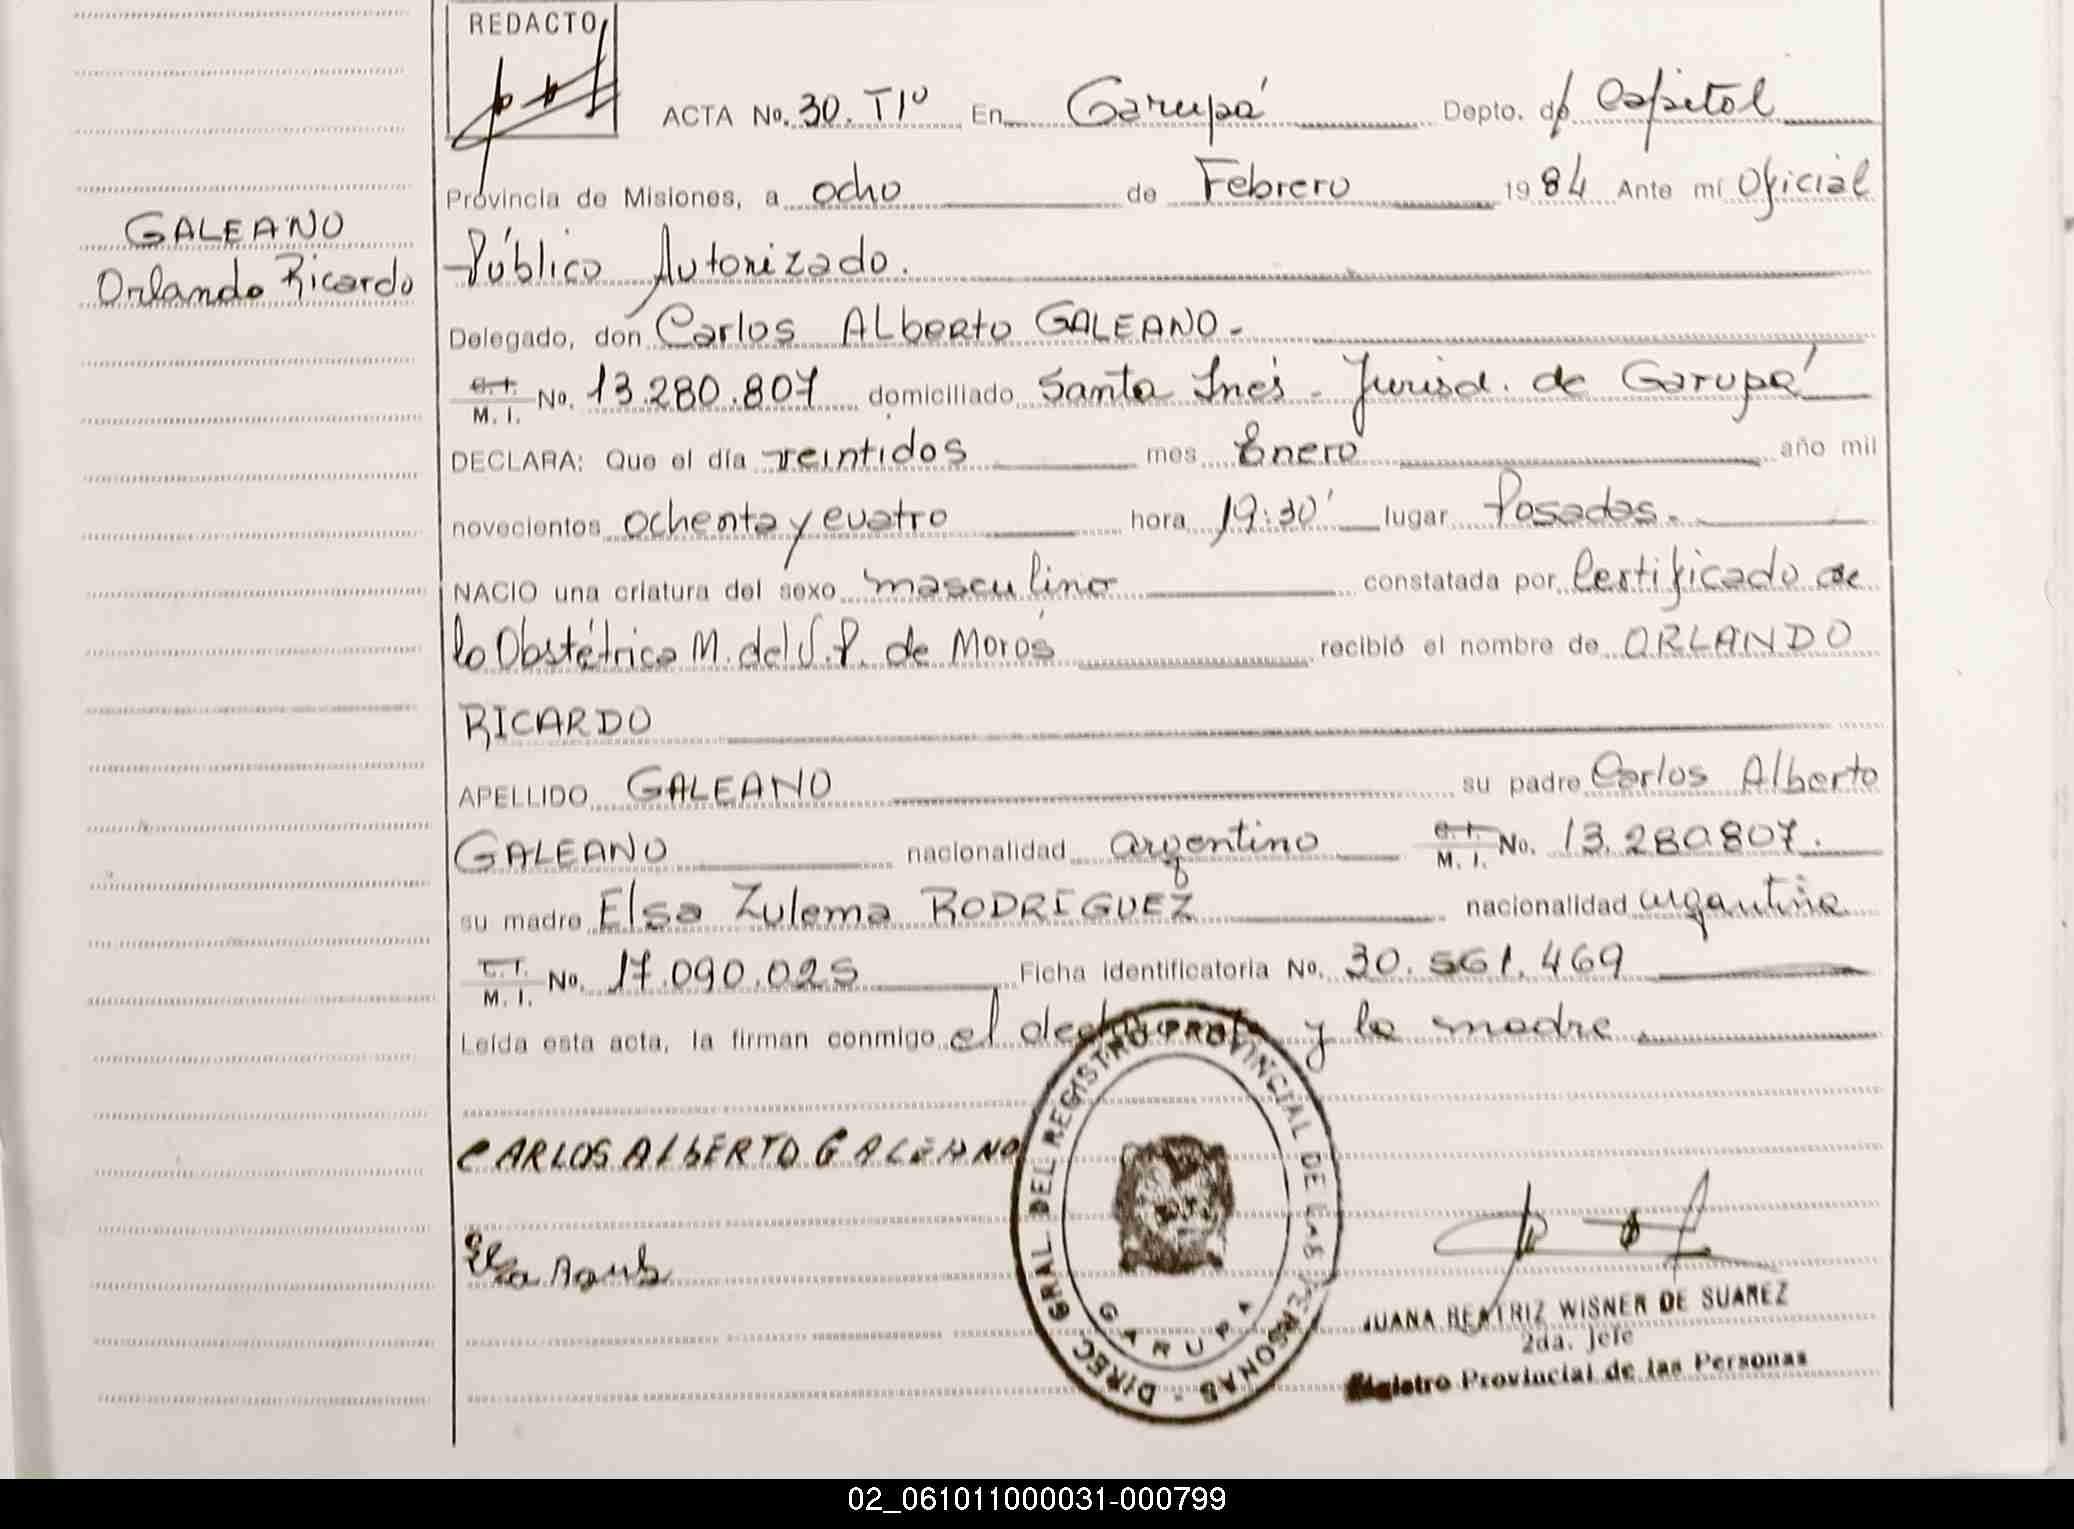 REDACTO
ACTA No. 30. Tº En Garupá Depto. Capital
Provincia de Misiones, a ocho de Febrero 1984 Ante mí Oficial
GALEANO
Público Autorizado.
Orlando Ricardo
Delegado, don Carlos Alberto GALEANO.-
C.I.
M. I. No. 13.280.807 domiciliado Santa Inés - Jurisd. de Garupá
DECLARA: Que el día veintidos mes Enero año mil
novecientos ochenta y cuatro hora 19:30' lugar Posadas.-
NACIO una criatura del sexo masculino constatada por Certificado de
la Obstétrica M. del S.P. de Moros recibió el nombre de ORLANDO
RICARDO
APELLIDO GALEANO su padre Carlos Alberto
GALEANO nacionalidad argentino C.I.
M. I. No. 13.280.807.
su madre Elsa Zulema RODRIGUEZ nacionalidad argentina
C.I.
M. I. No. 17.090.025 Ficha identificatoria No. 30.561.469
Leída esta acta, la firman conmigo el declarante y la madre
CARLOS ALBERTO GALEANO
DIREC GRAL DEL REGISTRO PROVINCIAL DE LAS PERSONAS -
GARUPA
JUANA BEATRIZ WISNER DE SUAREZ
2da. Jefe
Registro Provincial de las Personas
02_061011000031-000799